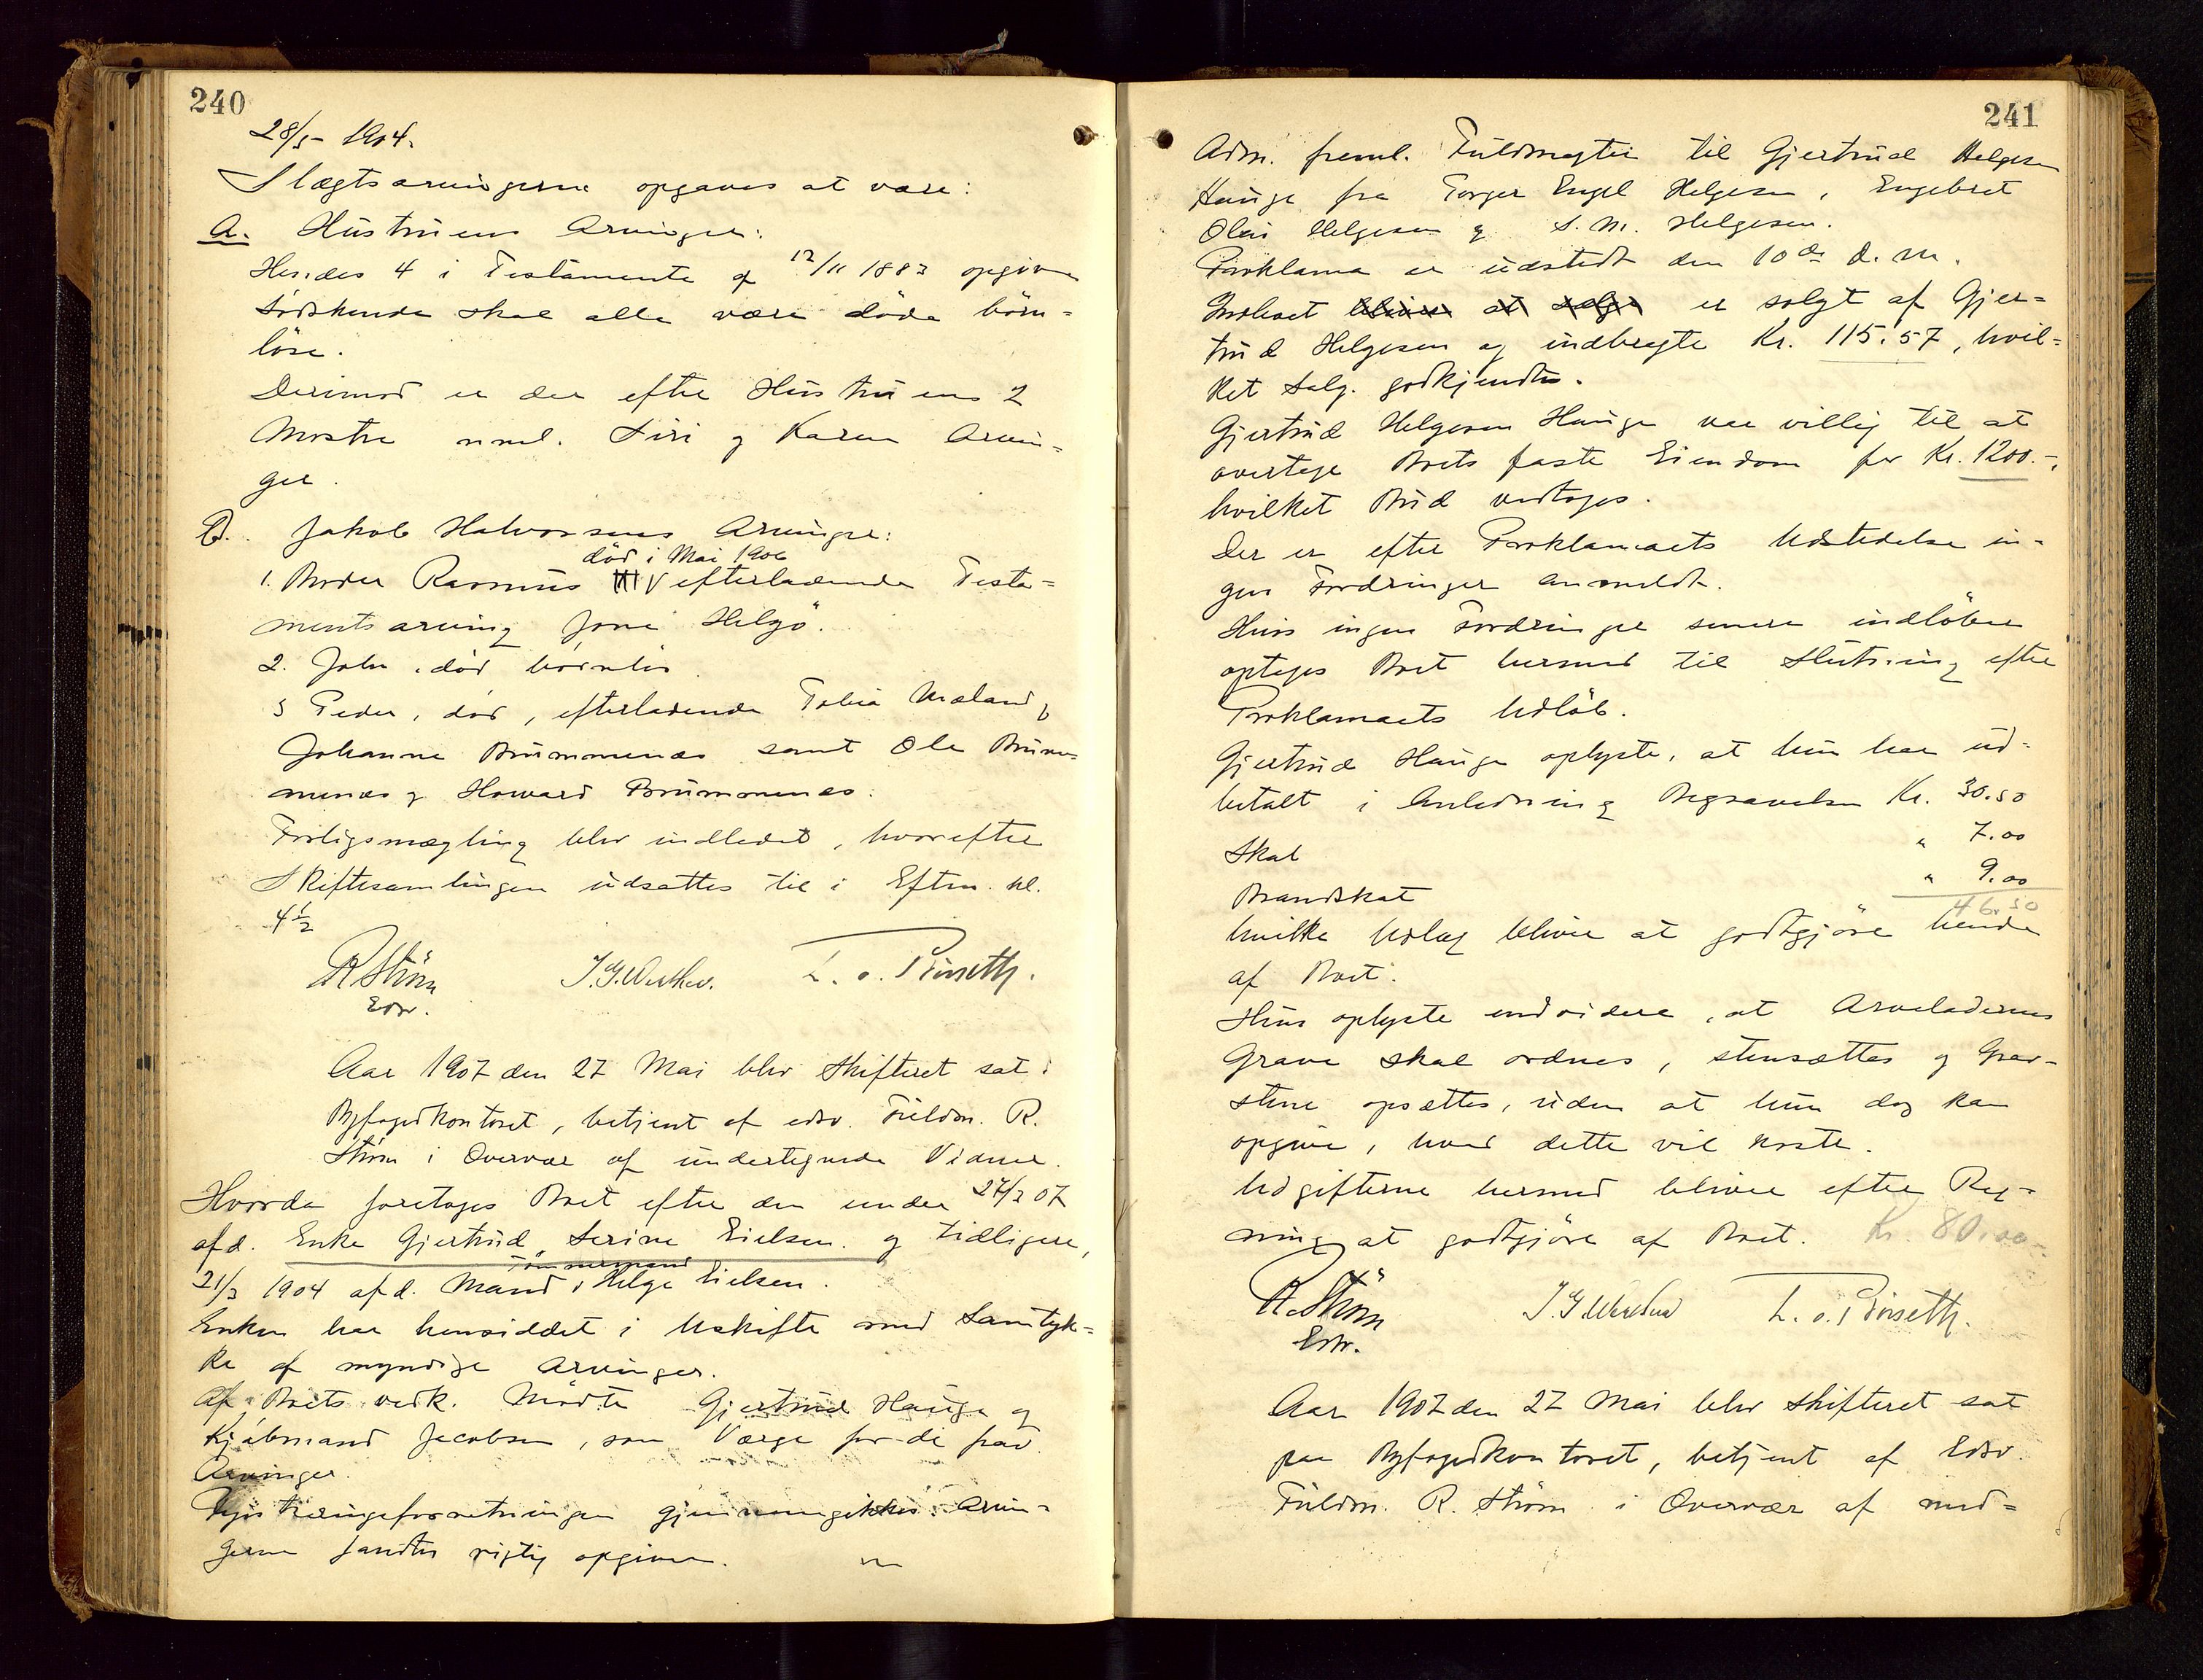 240
28/5 - 1904.
Slægtsarvingerne opgaves at være:
A. Hustruens Arvinger:
Hendes 4 i Testamente af 12/11 1887 opgivne
Södskende skal alle være döde börn=
löse.
Derimod er der efter Hustruens 2
Mostre nml. Siri og Karen Arvin=
ger.
B. Jakob Halvorsens Arvinger:
død i Mai 1906
1. Broder Rasmus efterladende Testa=
mentsarving Jone Helgö.
2. John, død barnløs
3 Peder, død, efterladende Tobia Mæland,
Johanne Brummenæs samt Ole Brum=
menæs og Howard Brummenæs.
Forligsmægling blev indledet, hvorefter
Skiftesamlingen udsattes til i Eftm. kl.
4½
R Ström
Edsv.
L. o. Pinseth.
Aar 1907 den 27 Mai blev Skifteret sat i
Byfogedkontoret, betjent af edsv. Fuldm. R.
Ström i Overvær af undertegnede Vidner.
Hvorda foretoges Boet efter den under 27/3 07
afd. Enke Gjertrud Serine Eielsen og tidligere,
Tömmermand
21/3 1904 afd. Mand, Helge Eielsen.
Enken har hensiddet i Uskifte med Samtyk=
ke af myndige Arvinger.
Af Boets vedk. mødte Gjertrud Hauge og
Kjöbmand Jacobsen, som Værge for de frav.
Arvinger.
Registreringsforretningen gjennemgikkes. Arvin=
gerne fandtes rigtig opgivne.
241
Adm. freml. Fuldmagter til Gjertrud Helgesen
Hauge fra Torger Engel Helgesen, Engebret
Olai Helgesen og S. M. Helgesen.
Proklama er udstedt den 10de d. M.
Indboet bliver at sælge er solgt af Gjer=
trud Helgesen og indbragte Kr. 115.57, hvil=
ket Salg godkjendtes.
Gjertrud Helgesen Hauge var villig til at
overtage Boets faste Eiendom for Kr. 1200.-,
hvilket Bud vedtoges.
Der er efter Proklamaets Udstedelse in=
gen Fordringer anmeldt.
Hvis ingen Fordringer senere indlöber
optages Boet hermed til Slutning efter
Proklamaets Udlöb.
Gjertrud Hauge oplyste, at hun har ud=
betalt i Anledning Begravelsen Kr. 30.50
Skat " 7.00
Brandskat " 9.00
46.50
hvilke Udlæg bliver at godtgjöre hende
af Boet.
Hun oplyste endvidere, at Arveladernes
Grave skal ordnes, stensættes og Grav=
stene opsættes, uden at hun dog kan
opgive, hvad dette vil koste.
Udgifterne hermed bliver efter Reg=
ning at godtgjöre af Boet. Kr. 80.00
R. Ström
Edsv.
L. o. Pinseth.
Aar 1907 den 27 Mai blev Skifteret sat
paa Byfogedkontoret, betjent af Edsv.
Fuldm. R. Ström i Overvær af med=